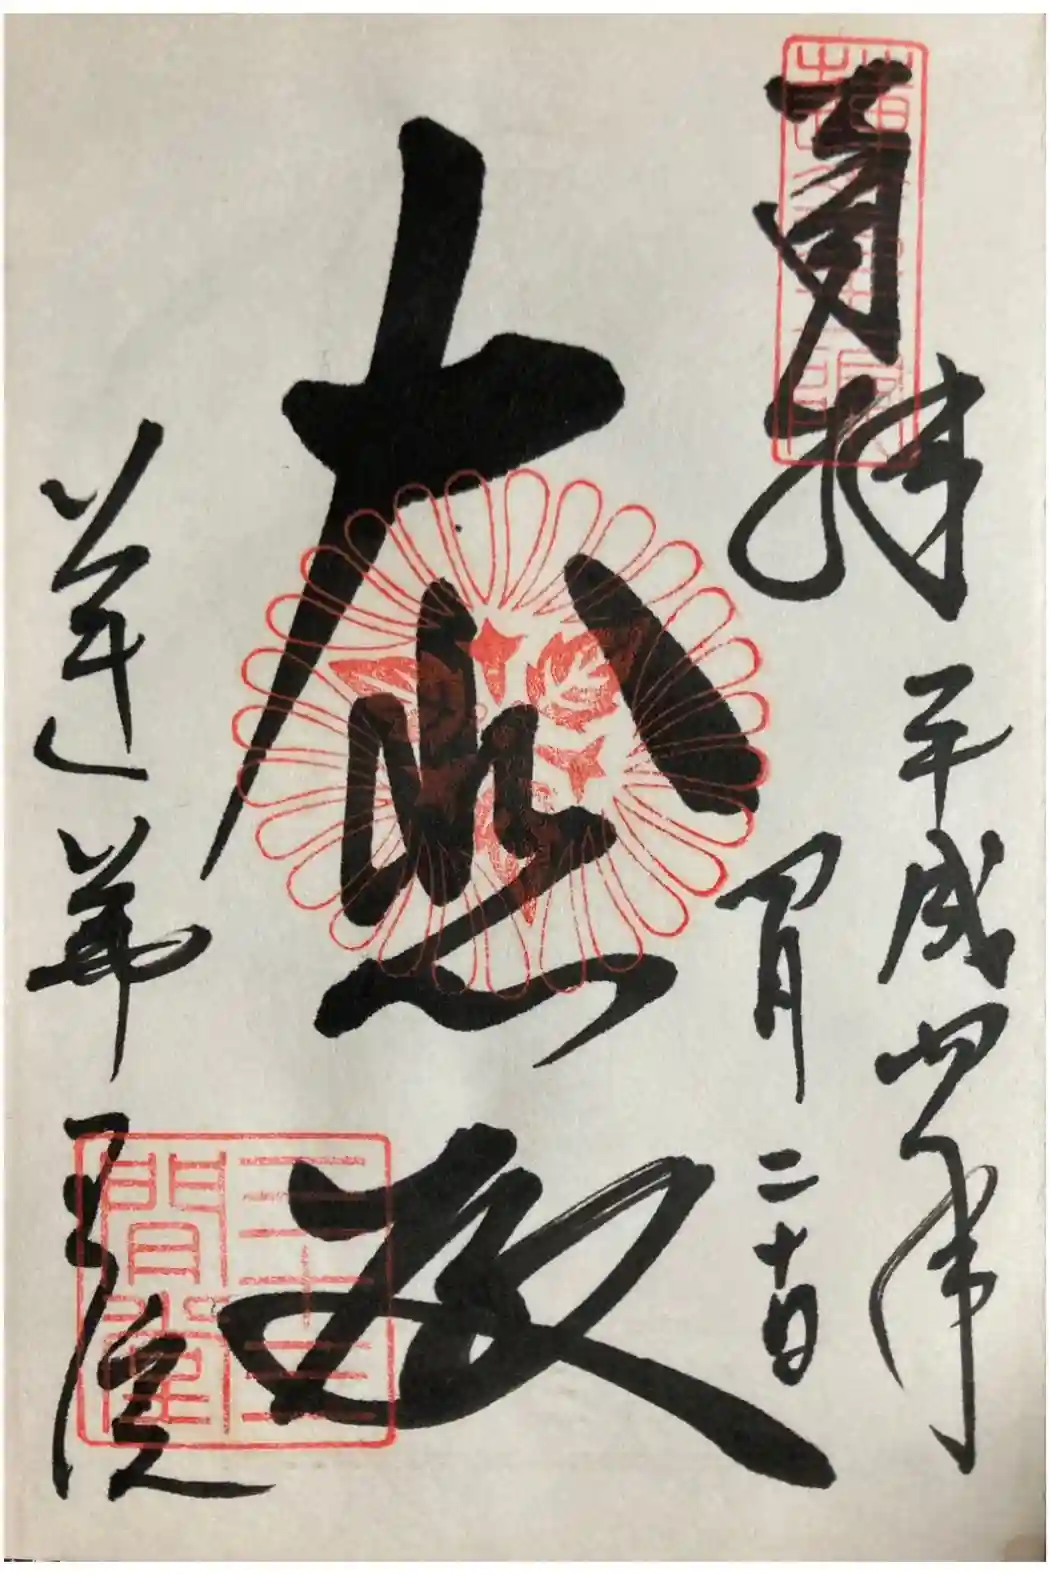 奉拝
平成年
四月二十日
大悲殿
蓮華王院
三十三
間堂